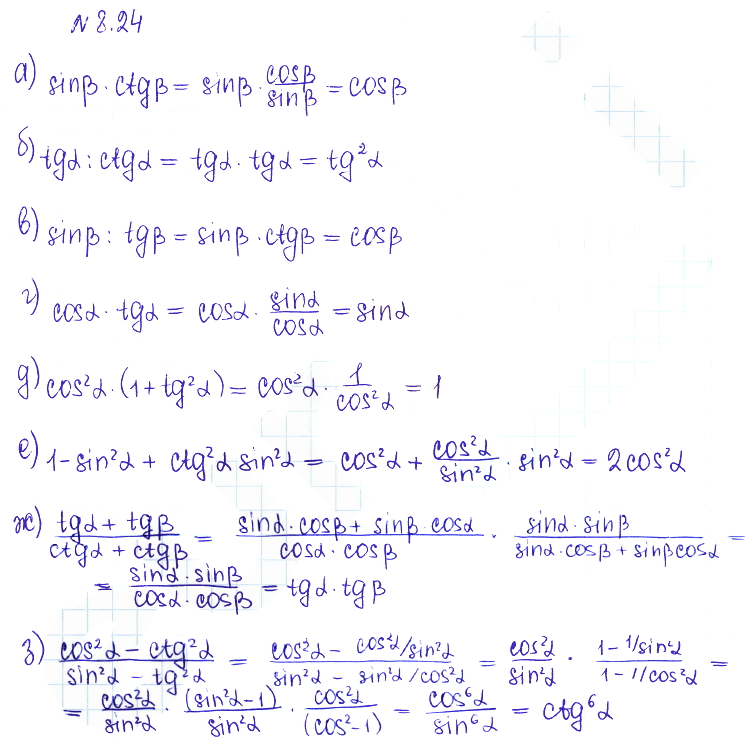 № 8.24
а) sinβ · ctgβ = sinβ · cosβ/sinβ = cosβ
б) tgα : ctgα = tgα · tgα = tg²α
в) sinβ : tgβ = sinβ · ctgβ = cosβ
г) cosα · tgα = cosα · sinα/cosα = sinα
д) cos²α · (1 + tg²α) = cos²α · 1/cos²α = 1
е) 1 - sin²α + ctg²α sin²α = cos²α + cos²α/sin²α · sin²α = 2cos²α
ж) (tgα + tgβ)/(ctgα + ctgβ) = (sinα · cosβ + sinβ · cosα)/(cosα · cosβ) · (sinα · sinβ)/(sinα · cosβ + sinβ cosα) =
= (sinα · sinβ)/(cosα · cosβ) = tgα · tgβ
з) (cos²α - ctg²α)/(sin²α - tg²α) = (cos²α - cos²α/sin²α)/(sin²α - sin²α/cos²α) = cos²α/sin²α · (1 - 1/sin²α)/(1 - 1/cos²α) =
= cos²α/sin²α · (sin²α - 1)/sin²α · cos²α/(cos² - 1) = cos⁶α/sin⁶α = ctg⁶α